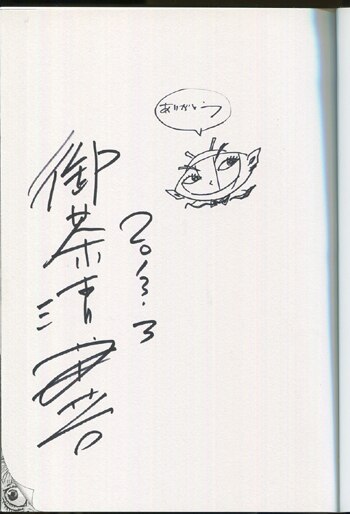 ありがとう
2013.3
御茶漬海苔